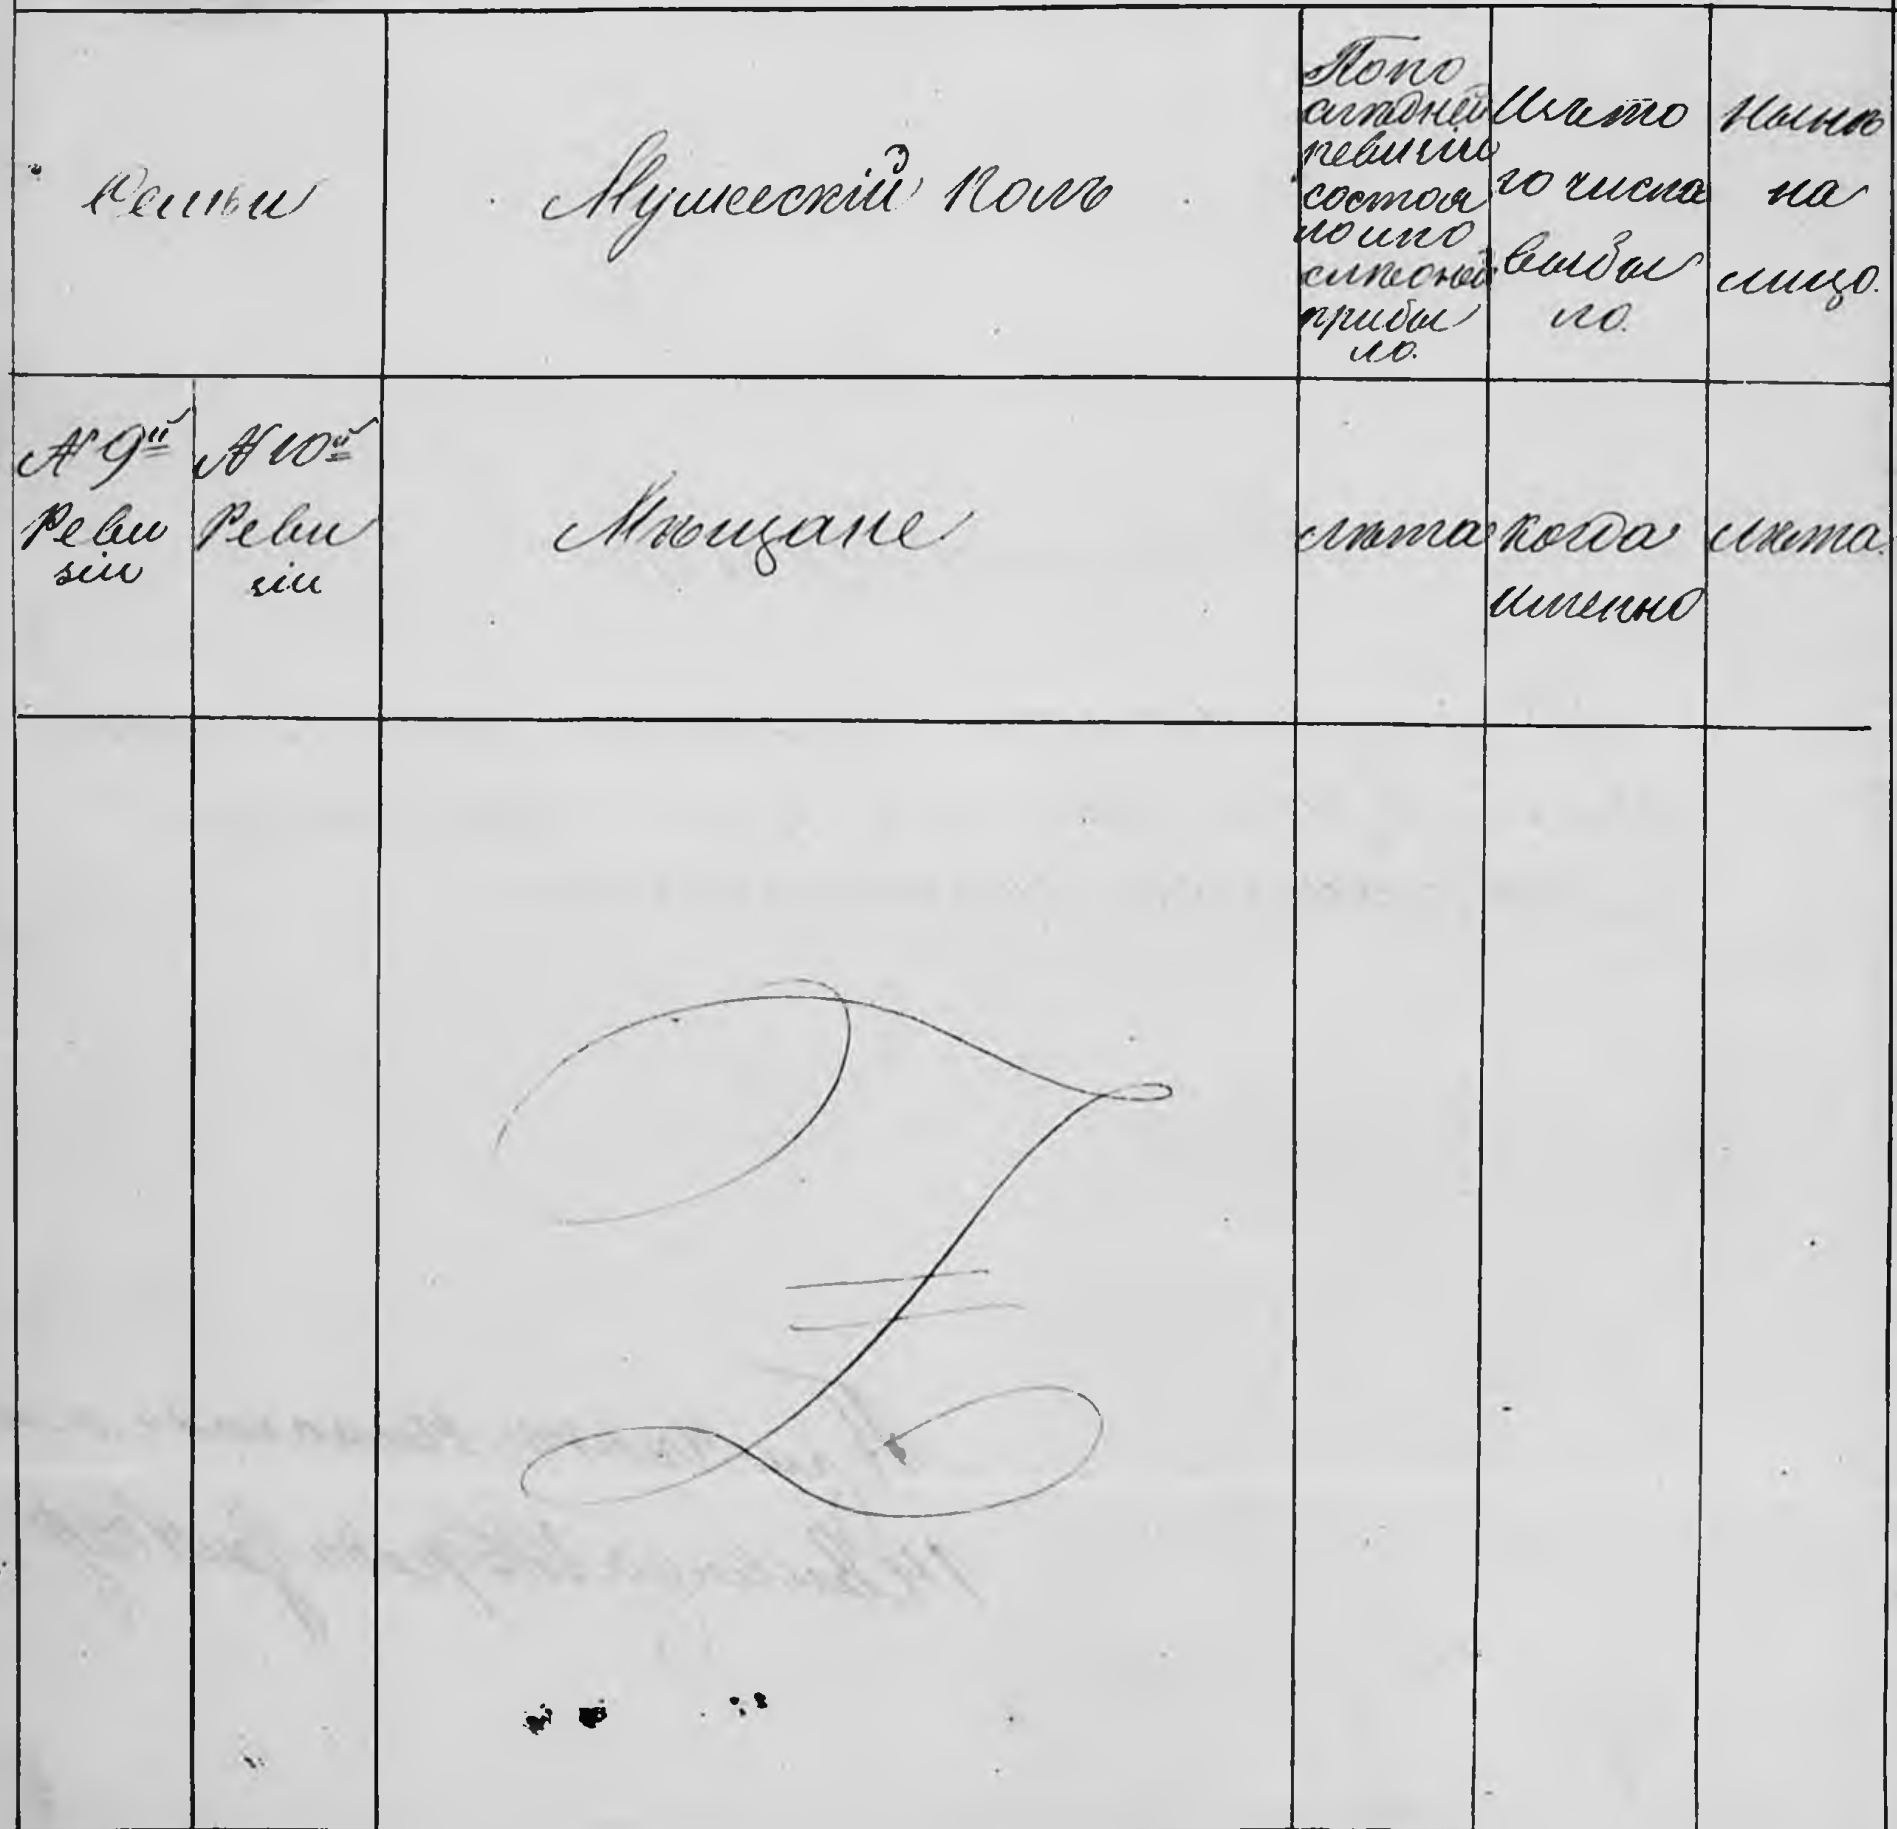 Семьи
Мужескій полъ
По по
слѣдней
ревизіи
состоя
ло и по
слѣ оной
прибы
ло.
Изъ то
го числа
выбы
ло.
Нынѣ
на
лицо.
№ 9й
Реви
зіи
№ 10й
Реви
зіи
Мѣщане
лѣта
когда
именно
лѣта.